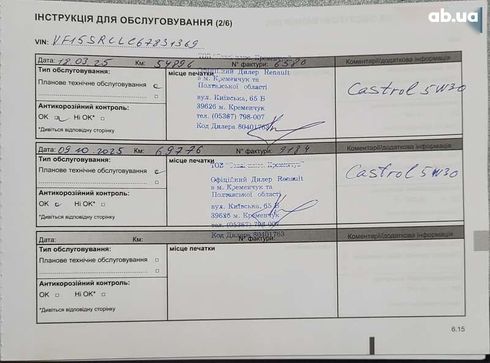 ab.ua
ІНСТРУКЦІЯ ДЛЯ ОБСЛУГОВУВАННЯ (2/6)
VIN: VF15SRCLC67831369
Дата: 18.03.25 Км: 54896 N° фактури: 6580 Коментарі/додаткова інформація
Тип обслуговування: місце печатки
Планове технічне обслуговування
Офіційний Дилер Renault
в м. Кременчук та
Полтавської області
вул. Київська, 65 В
39626 м. Кременчук
тел. (05367) 798-007
Код Дилера 80401763
Castrol 5W30
Антикорозійний контроль:
ОК Ні ОК*
*Дивіться відповідну сторінку
Дата: 09.10.2025 Км: 69776 N° фактури: Коментарі/додаткова інформація
Тип обслуговування: місце печатки
Планове технічне обслуговування
Офіційний Дилер Renault
в м. Кременчук та
Полтавської області
вул. Київська, 65 В
39626 м. Кременчук
тел. (05367) 798-007
Код Дилера 80401763
Castrol 5W30
Антикорозійний контроль:
ОК Ні ОК*
*Дивіться відповідну сторінку
Дата: Км: N° фактури: Коментарі/додаткова інформація
Тип обслуговування: місце печатки
Планове технічне обслуговування
Антикорозійний контроль:
ОК Ні ОК*
*Дивіться відповідну сторінку
6.15